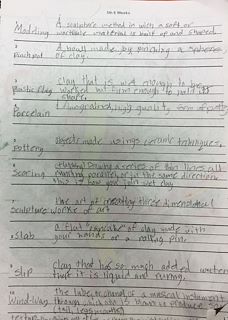 A sculpture method in with a soft or
Modeling workable material is built up and shaped.
2 A bowl made by pinching a sphere
Pinch pot of clay.
3 clay that is wet enough to be
Plastic clay worked but firm enough to hold its
shape.
4
Porcelain high quality form of
5 objects made using ceramic techniques.
Pottery
6 drawing a series of lines all
Scoring running parallel, or in the same direction.
this is how you join wet clay.
7 The art of creating three dimensional
Sculpture works of art
8 a flat of clay made with
Slab your hands or a rolling pin.
9 Clay that has so much added water
Slip that it is liquid and runny.
10 the tube, channel of a musical instrument
through which air is blown to produce